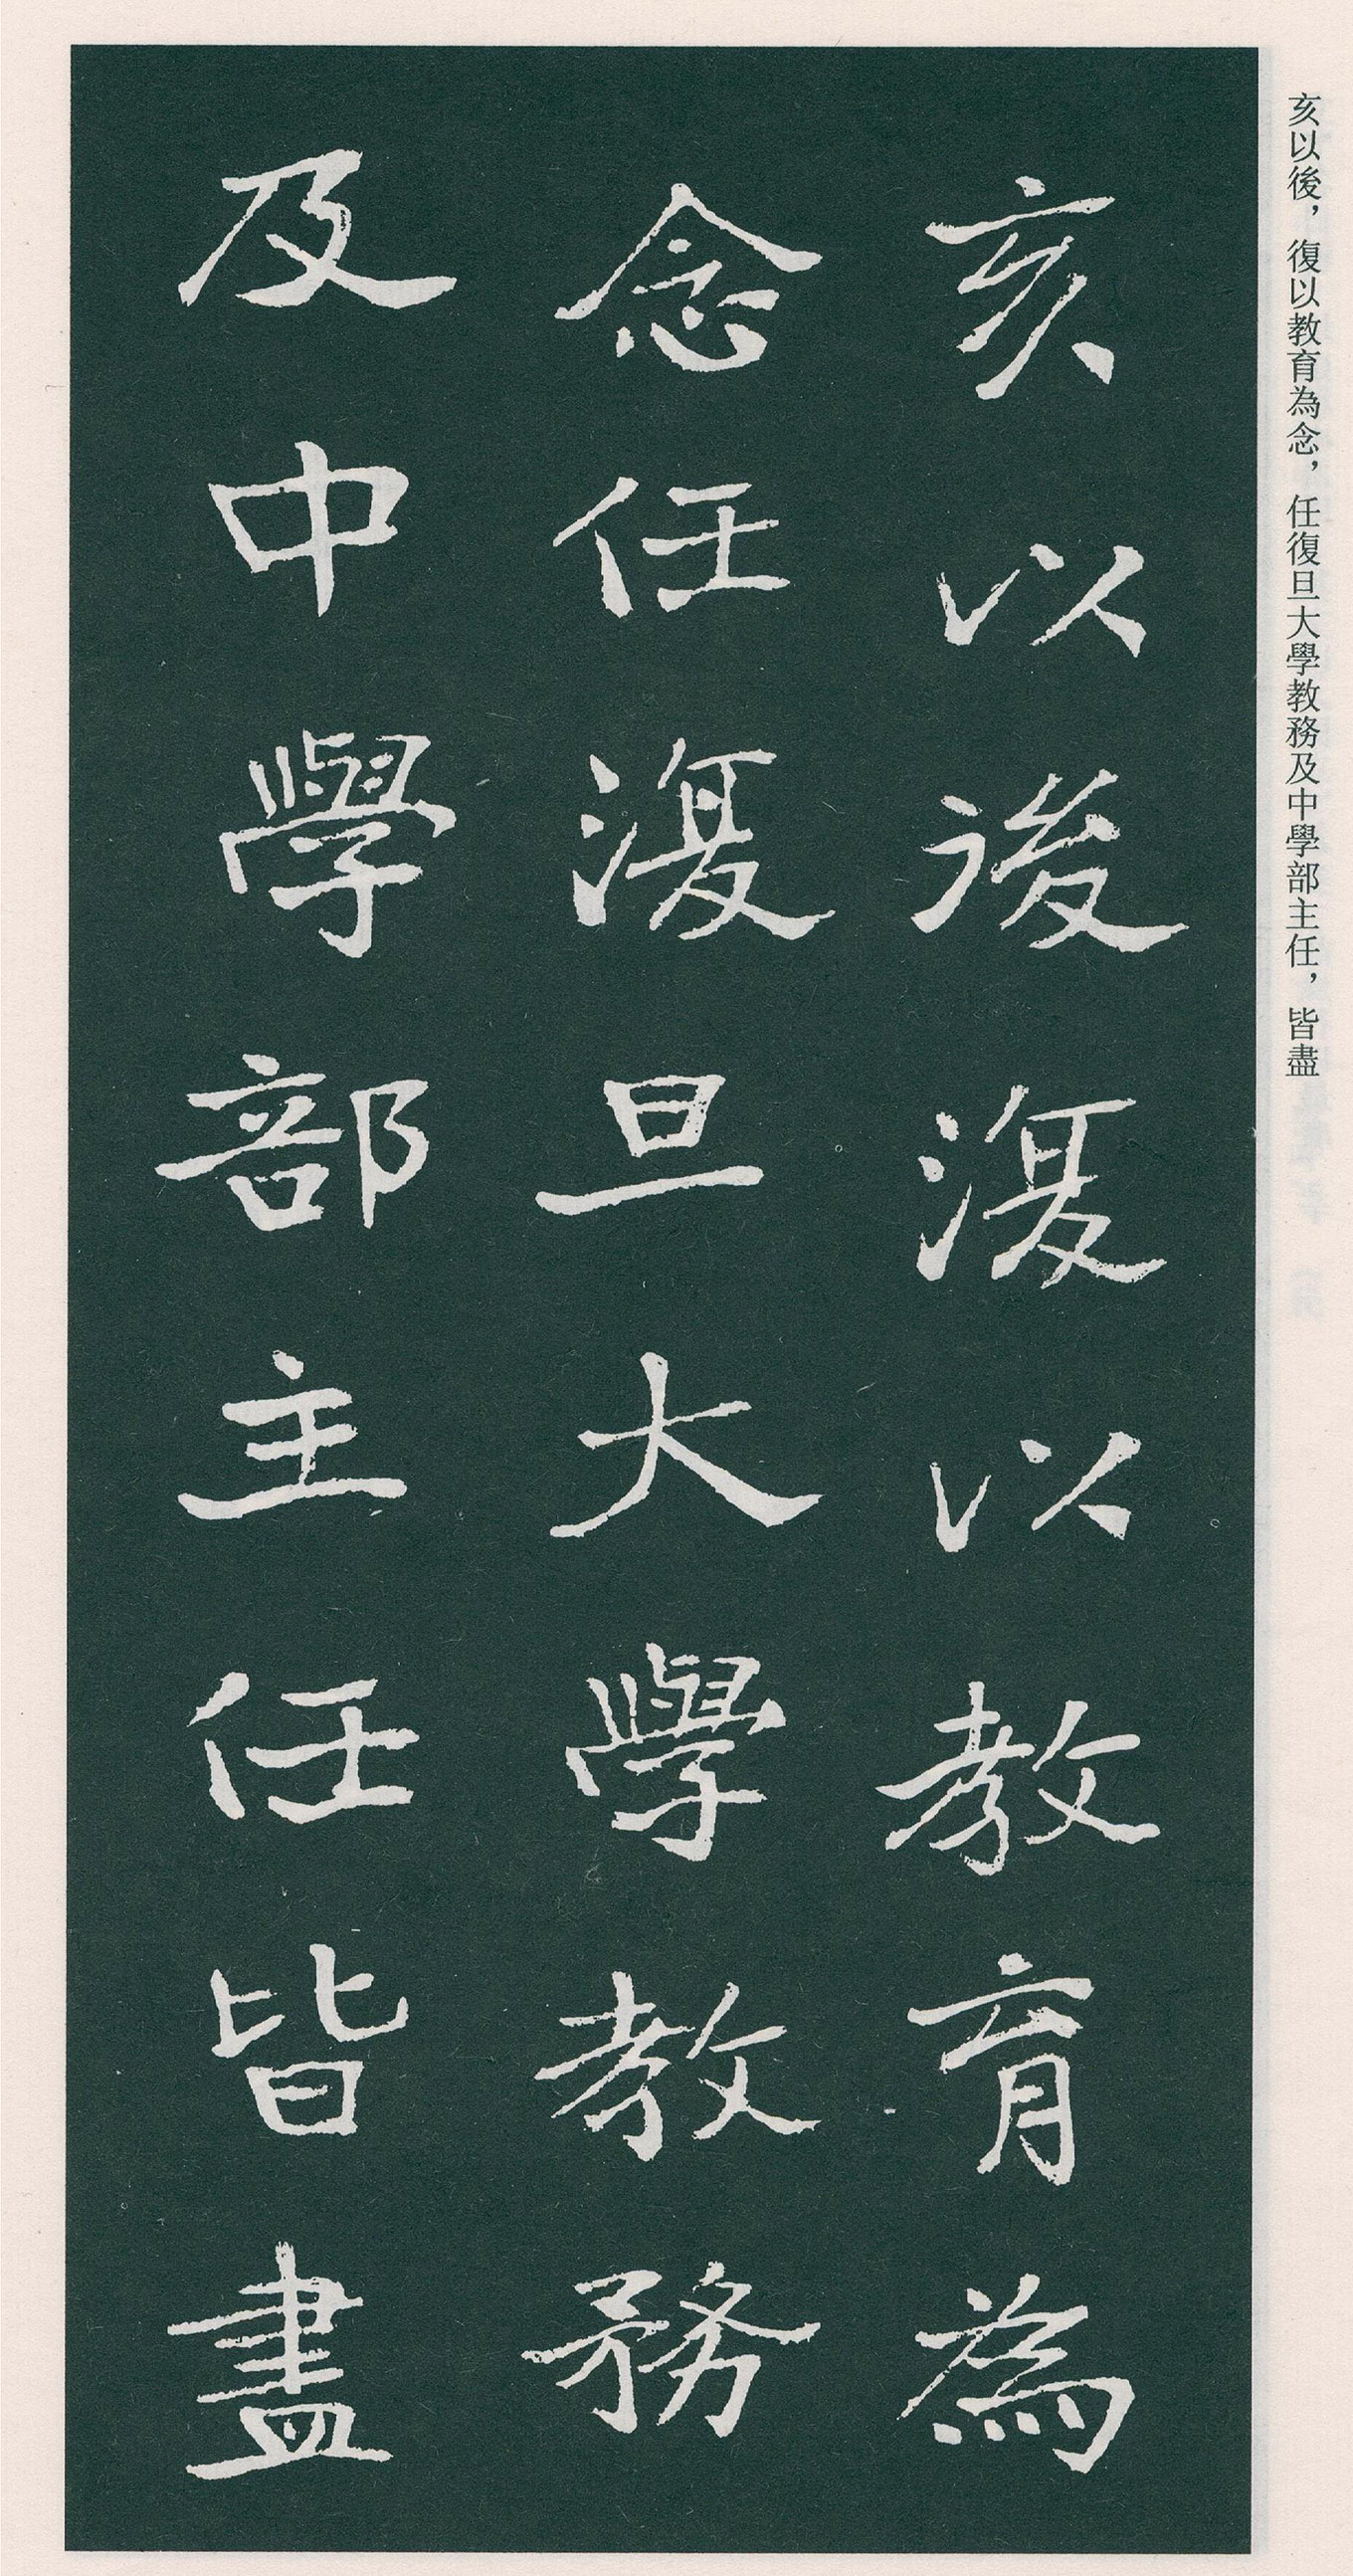 亥以後，復以教育為念，任復旦大學教務及中學部主任，皆盡
亥以後澓以教育為
念任澓旦大學教務
及中學部主任皆盡